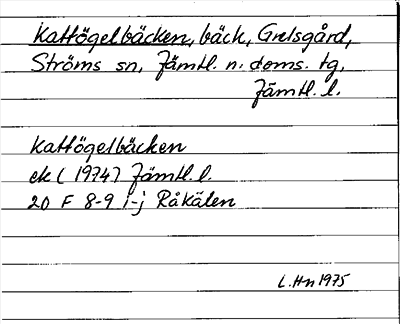 Kattögelbäcken, bäck, Grelsgård,
Ströms sn, Jämtl. n. doms. tg,
Jämtl. l.
Kattögelbäcken
ek (1974) Jämtl. l.
20 F 8-9 i-j Råkälen
L. Hn 1975